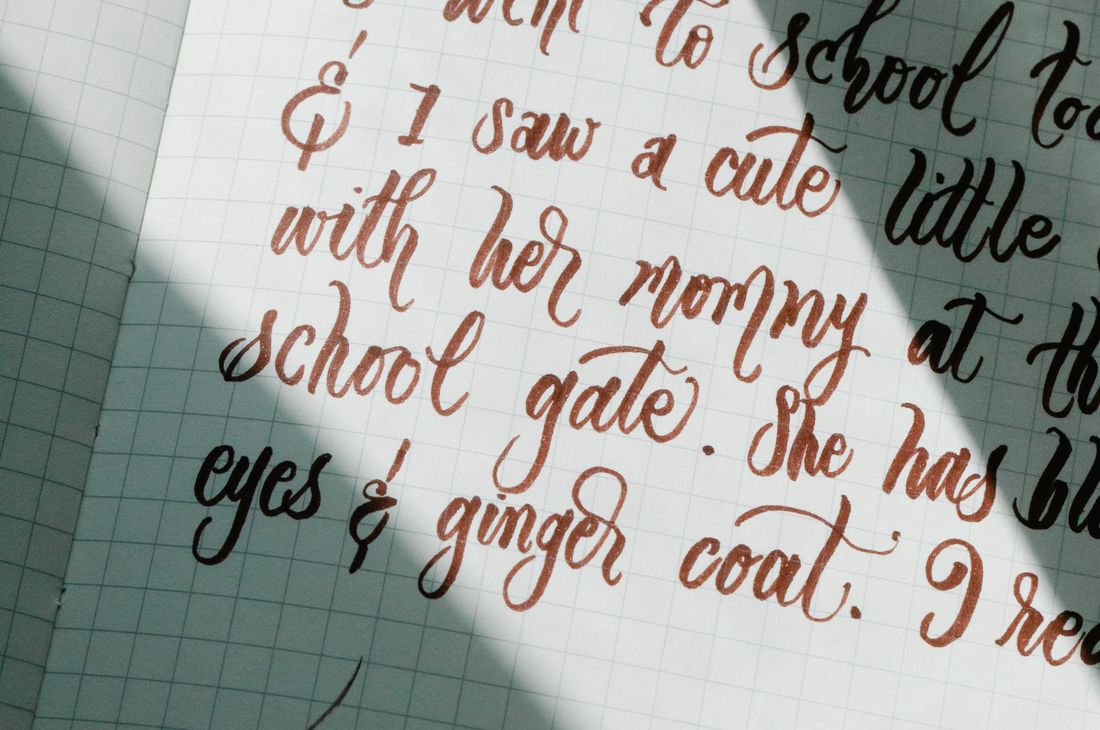 went to school
& I saw a cute little
with her mommy at
school gate. She has
eyes & ginger coat. I